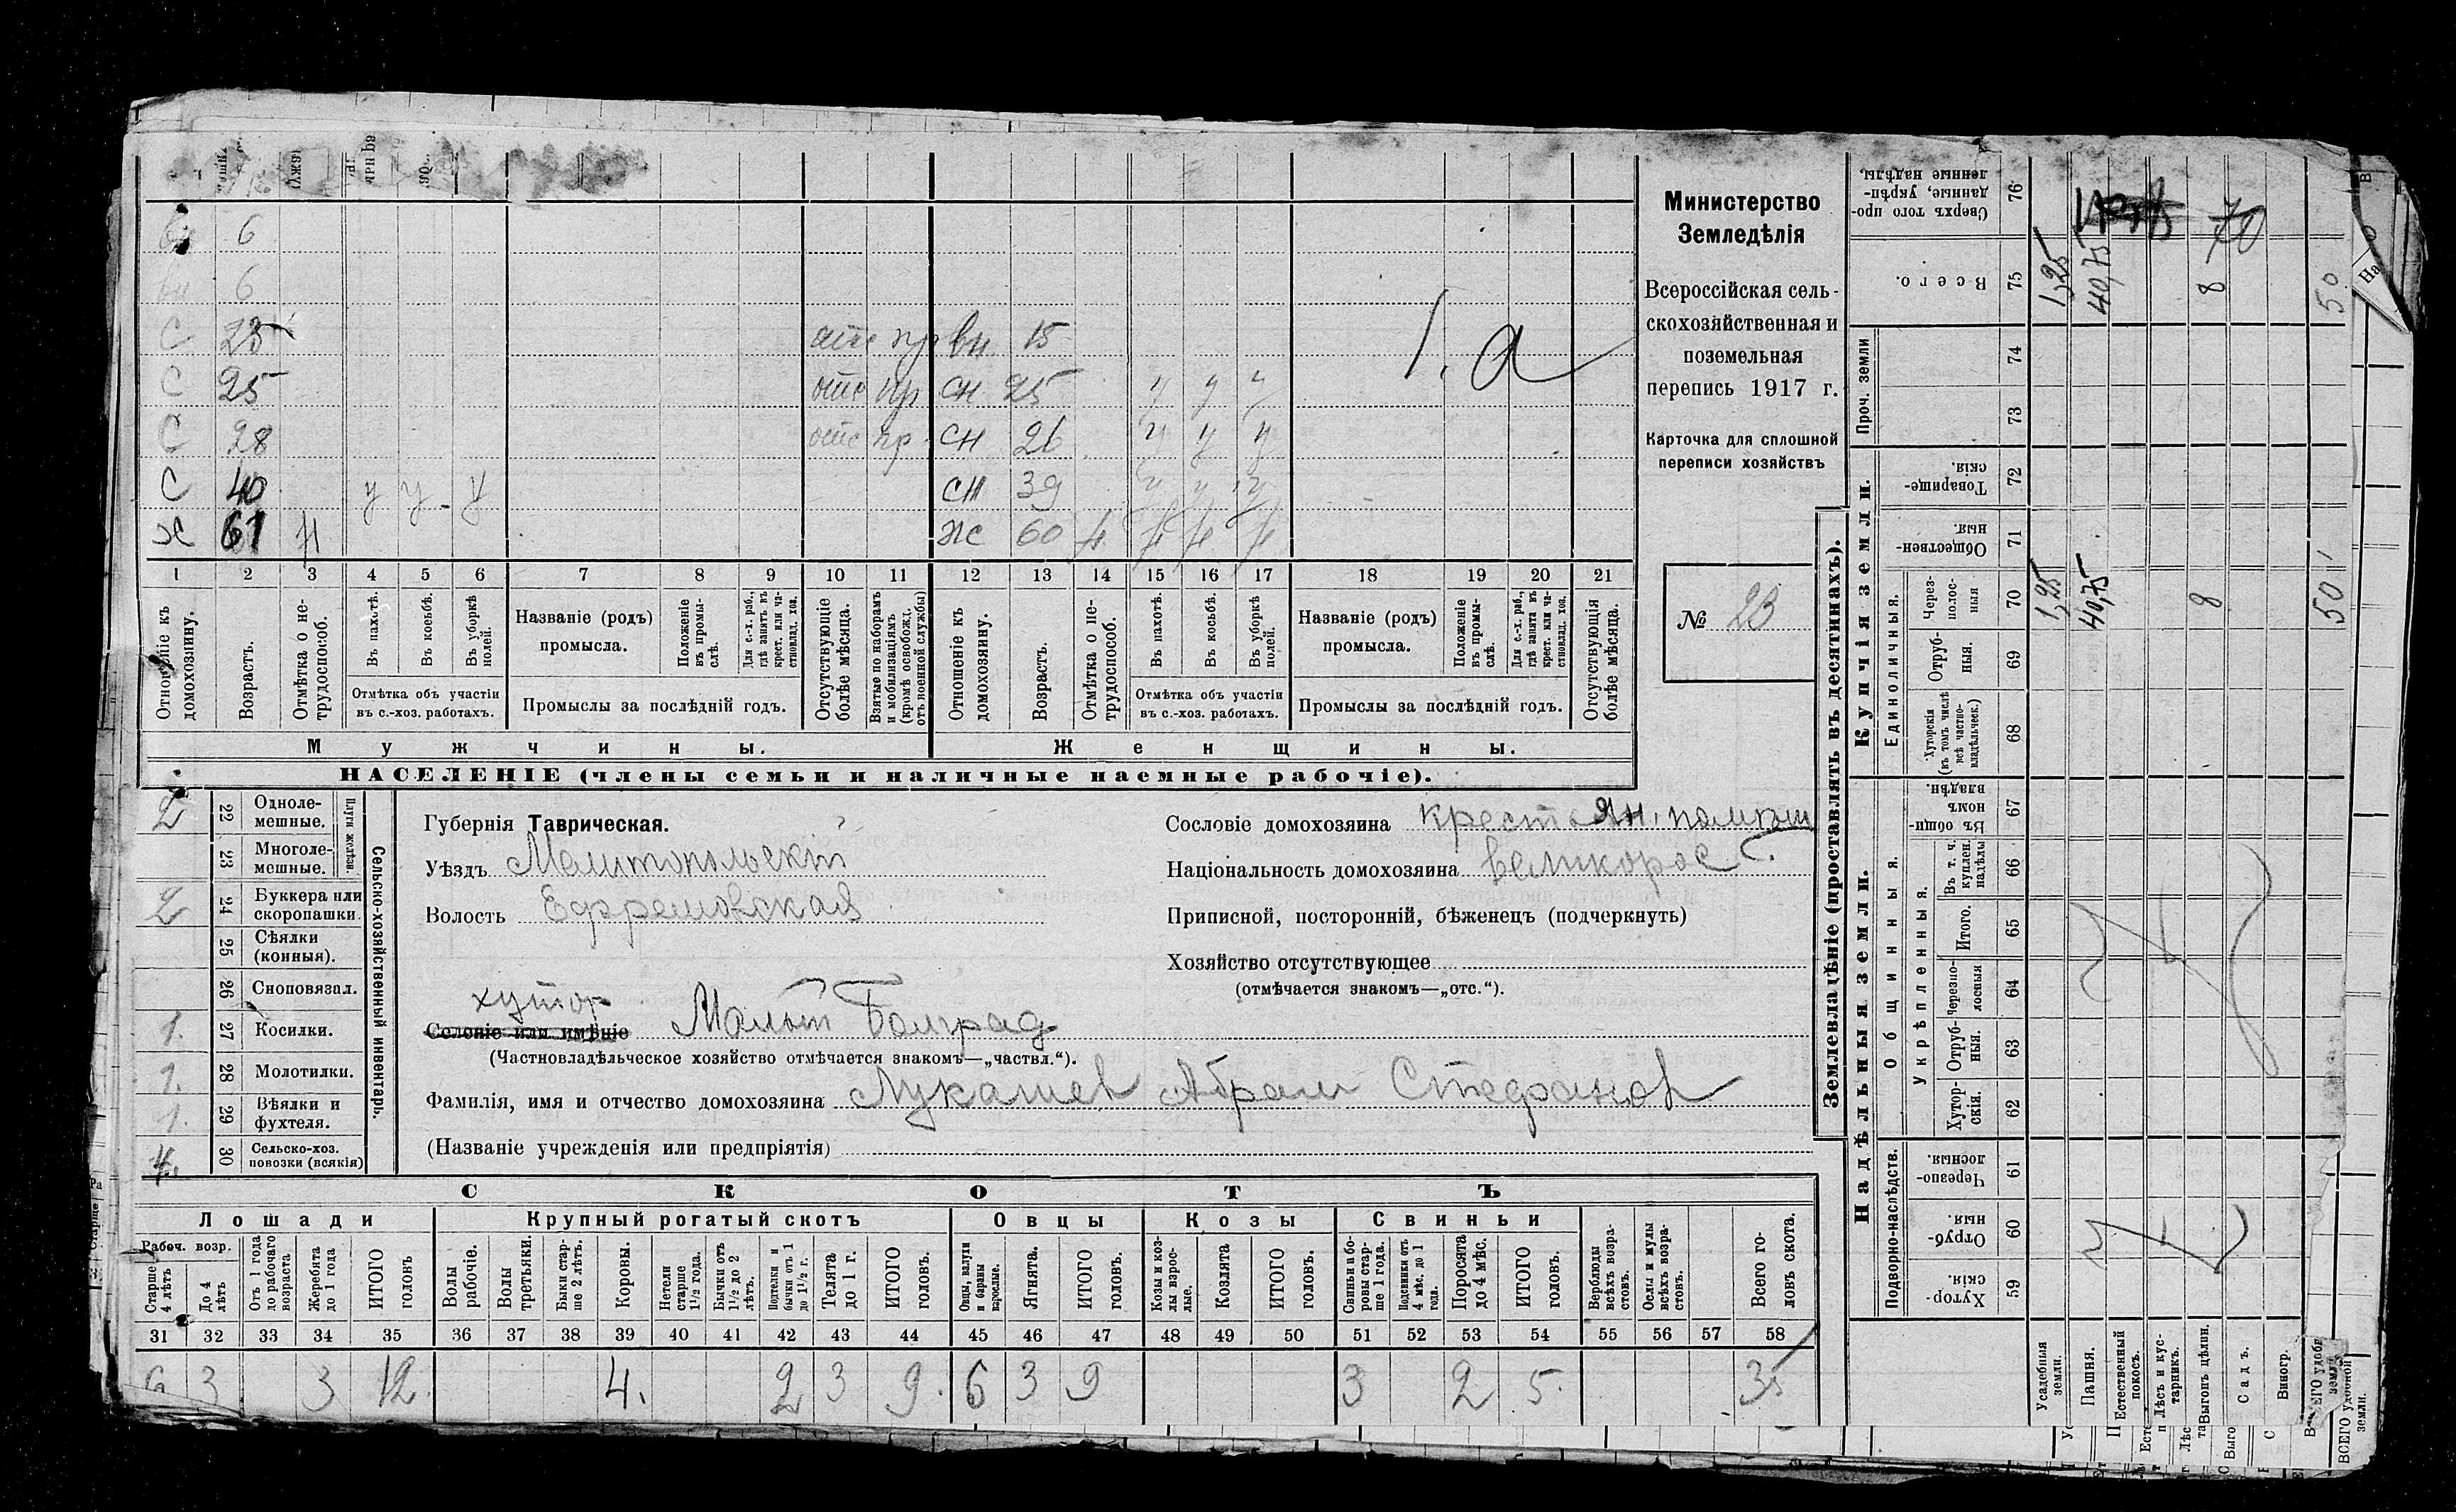 Министерство
Земледѣлія
Всероссійская сель-
скохозяйственная и
поземельная
перепись 1917 г.
Карточка для сплошной
переписи хозяйствъ
№ 23
1. а
6
вн 6
С 23 отс пр вн 15
С 25 отс пр сн 25 у у у
С 28 отс пр. сн 26 у у у
С 40 у у у сн 39 у у у
х 61 н ж 60 н н н н
1 2 3 4 5 6 7 8 9 10 11 12 13 14 15 16 17 18 19 20 21
Отношеніе къ домохозяину.
Возрастъ.
Отмѣтка о не-трудоспособ.
Въ пахотѣ.
Въ косьбѣ.
Въ уборкѣ полей.
Отмѣтка объ участіи
въ с.-хоз. работахъ.
Названіе (родъ)
промысла.
Положеніе въ промы-слѣ.
Для с.-х. раб., гдѣ занятъ въ крест. или ча-стновлад. хоз.
Промыслы за послѣдній годъ.
Отсутствующіе болѣе мѣсяца.
Взятые по наборамъ и мобилизаціямъ (кромѣ освобожд. отъ военной службы)
Отношеніе къ домохозяину.
Возрастъ.
Отмѣтка о не-трудоспособ.
Въ пахотѣ.
Въ косьбѣ.
Въ уборкѣ полей.
Отмѣтка объ участіи
въ с.-хоз. работахъ.
Названіе (родъ)
промысла.
Положеніе въ промы-слѣ.
Для с.-х. раб., гдѣ занята въ крест. или ча-стновлад. хоз.
Промыслы за послѣдній годъ.
Отсутствующія болѣе мѣсяца.
Мужчины. Женщины.
НАСЕЛЕНІЕ (члены семьи и наличные наемные рабочіе).
Сельско-хозяйственный инвентарь.
Плуги желѣзн.
2 22 Одноле-мешные.
23 Многоле-мешные.
2 24 Буккера или скоропашки.
25 Сѣялки (конныя).
26 Сноповязал.
1. 27 Косилки.
1. 28 Молотилки.
1. 29 Вѣялки и фухтеля.
4. 30 Сельско-хоз. повозки (всякія)
Губернія Таврическая.
Уѣздъ Мелитопольскій
Волость Ефремовская
хутор
Селеніе или имѣніе Малый Болград
(Частновладѣльческое хозяйство отмѣчается знакомъ—„частвл.“).
Фамилія, имя и отчество домохозяина Лукашев Абрам Стефанов
(Названіе учрежденія или предпріятія)
Сословіе домохозяина крестьян.
Національность домохозяина великорос
Приписной, посторонній, бѣженецъ (подчеркнуть)
Хозяйство отсутствующее
(отмѣчается знакомъ—„отс.“).
СКОТЪ
Лошади Крупный рогатый скотъ Овцы Козы Свиньи
Рабоч. возр.
Старше 4 лѣтъ
До 4 лѣтъ
Отъ 1 года до рабочаго возраста
Жеребята до 1 года
ИТОГО головъ.
Волы рабочіе.
Волы третьяки.
Быки стар-ше 2 лѣтъ.
Коровы.
Нетели старше 1½ года.
Бычки отъ 1½ до 2 лѣтъ.
Подтелки и бычки отъ 1 до 1½ г.
Телята до 1 г.
ИТОГО головъ.
Овцы, валухи и бараны взрослые.
Ягнята.
ИТОГО головъ.
Козы и коз-лы взрос-лые.
Козлята
ИТОГО головъ.
Свиньи и бо-ровы стар-ше 1 года.
Подсвинки отъ 4 мѣс. до 1 года.
Поросята до 4 мѣс.
ИТОГО головъ.
Верблюды всѣхъ возра-стовъ.
Ослы и мулы всѣхъ возра-стовъ.
Всего го-ловъ скота.
31 32 33 34 35 36 37 38 39 40 41 42 43 44 45 46 47 48 49 50 51 52 53 54 55 56 57 58
6 3 3 12. 4. 2 3 9. 6 3 9 3 2 5. 35
Землевладѣніе (проставлять въ десятинахъ).
Купчія земли.
Надѣльныя земли.
Проч. земли
Единоличныя.
Общинныя.
Укрѣпленныя.
Подворно-наслѣдств.
Сверхъ того про-данные, укрѣп-ленные надѣлы. 76
Всего. 75 1,25 40,75 8 50
70
74
73
Товарище-скія. 72
Обществен-ныя. 71
Через-полос-ныя 70 1,25 40,75 8 50
Отруб-ныя. 69
Хуторскія (въ томъ числѣ всѣ частно-владѣльческ.) 68
Въ общи-номъ владѣн. 67
Въ т. ч. куплен. надѣлы 66
Итого. 65
Черезпо-лосныя 64
Отруб-ныя. 63
Хутор-скія. 62
Черезпо-лосныя. 61
Отруб-ныя. 60
Хутор-скія. 59
Усадебныя земли.
Пашня.
Естественный покосъ.
Лѣсъ и кус-тарникъ.
Выгонъ цѣлин.
Садъ.
Виногр.
ВСЕГО удобной земли.